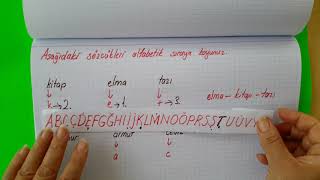 Aşağıdaki sözcükleri alfabetik sıraya koyunuz.
kitap elma tazı
k→2. e→1. t→3.
elma-kitap-tazı
ABCÇDEFGĞHIİJKLMNOÖPRSŞTUÜV
armut
a c